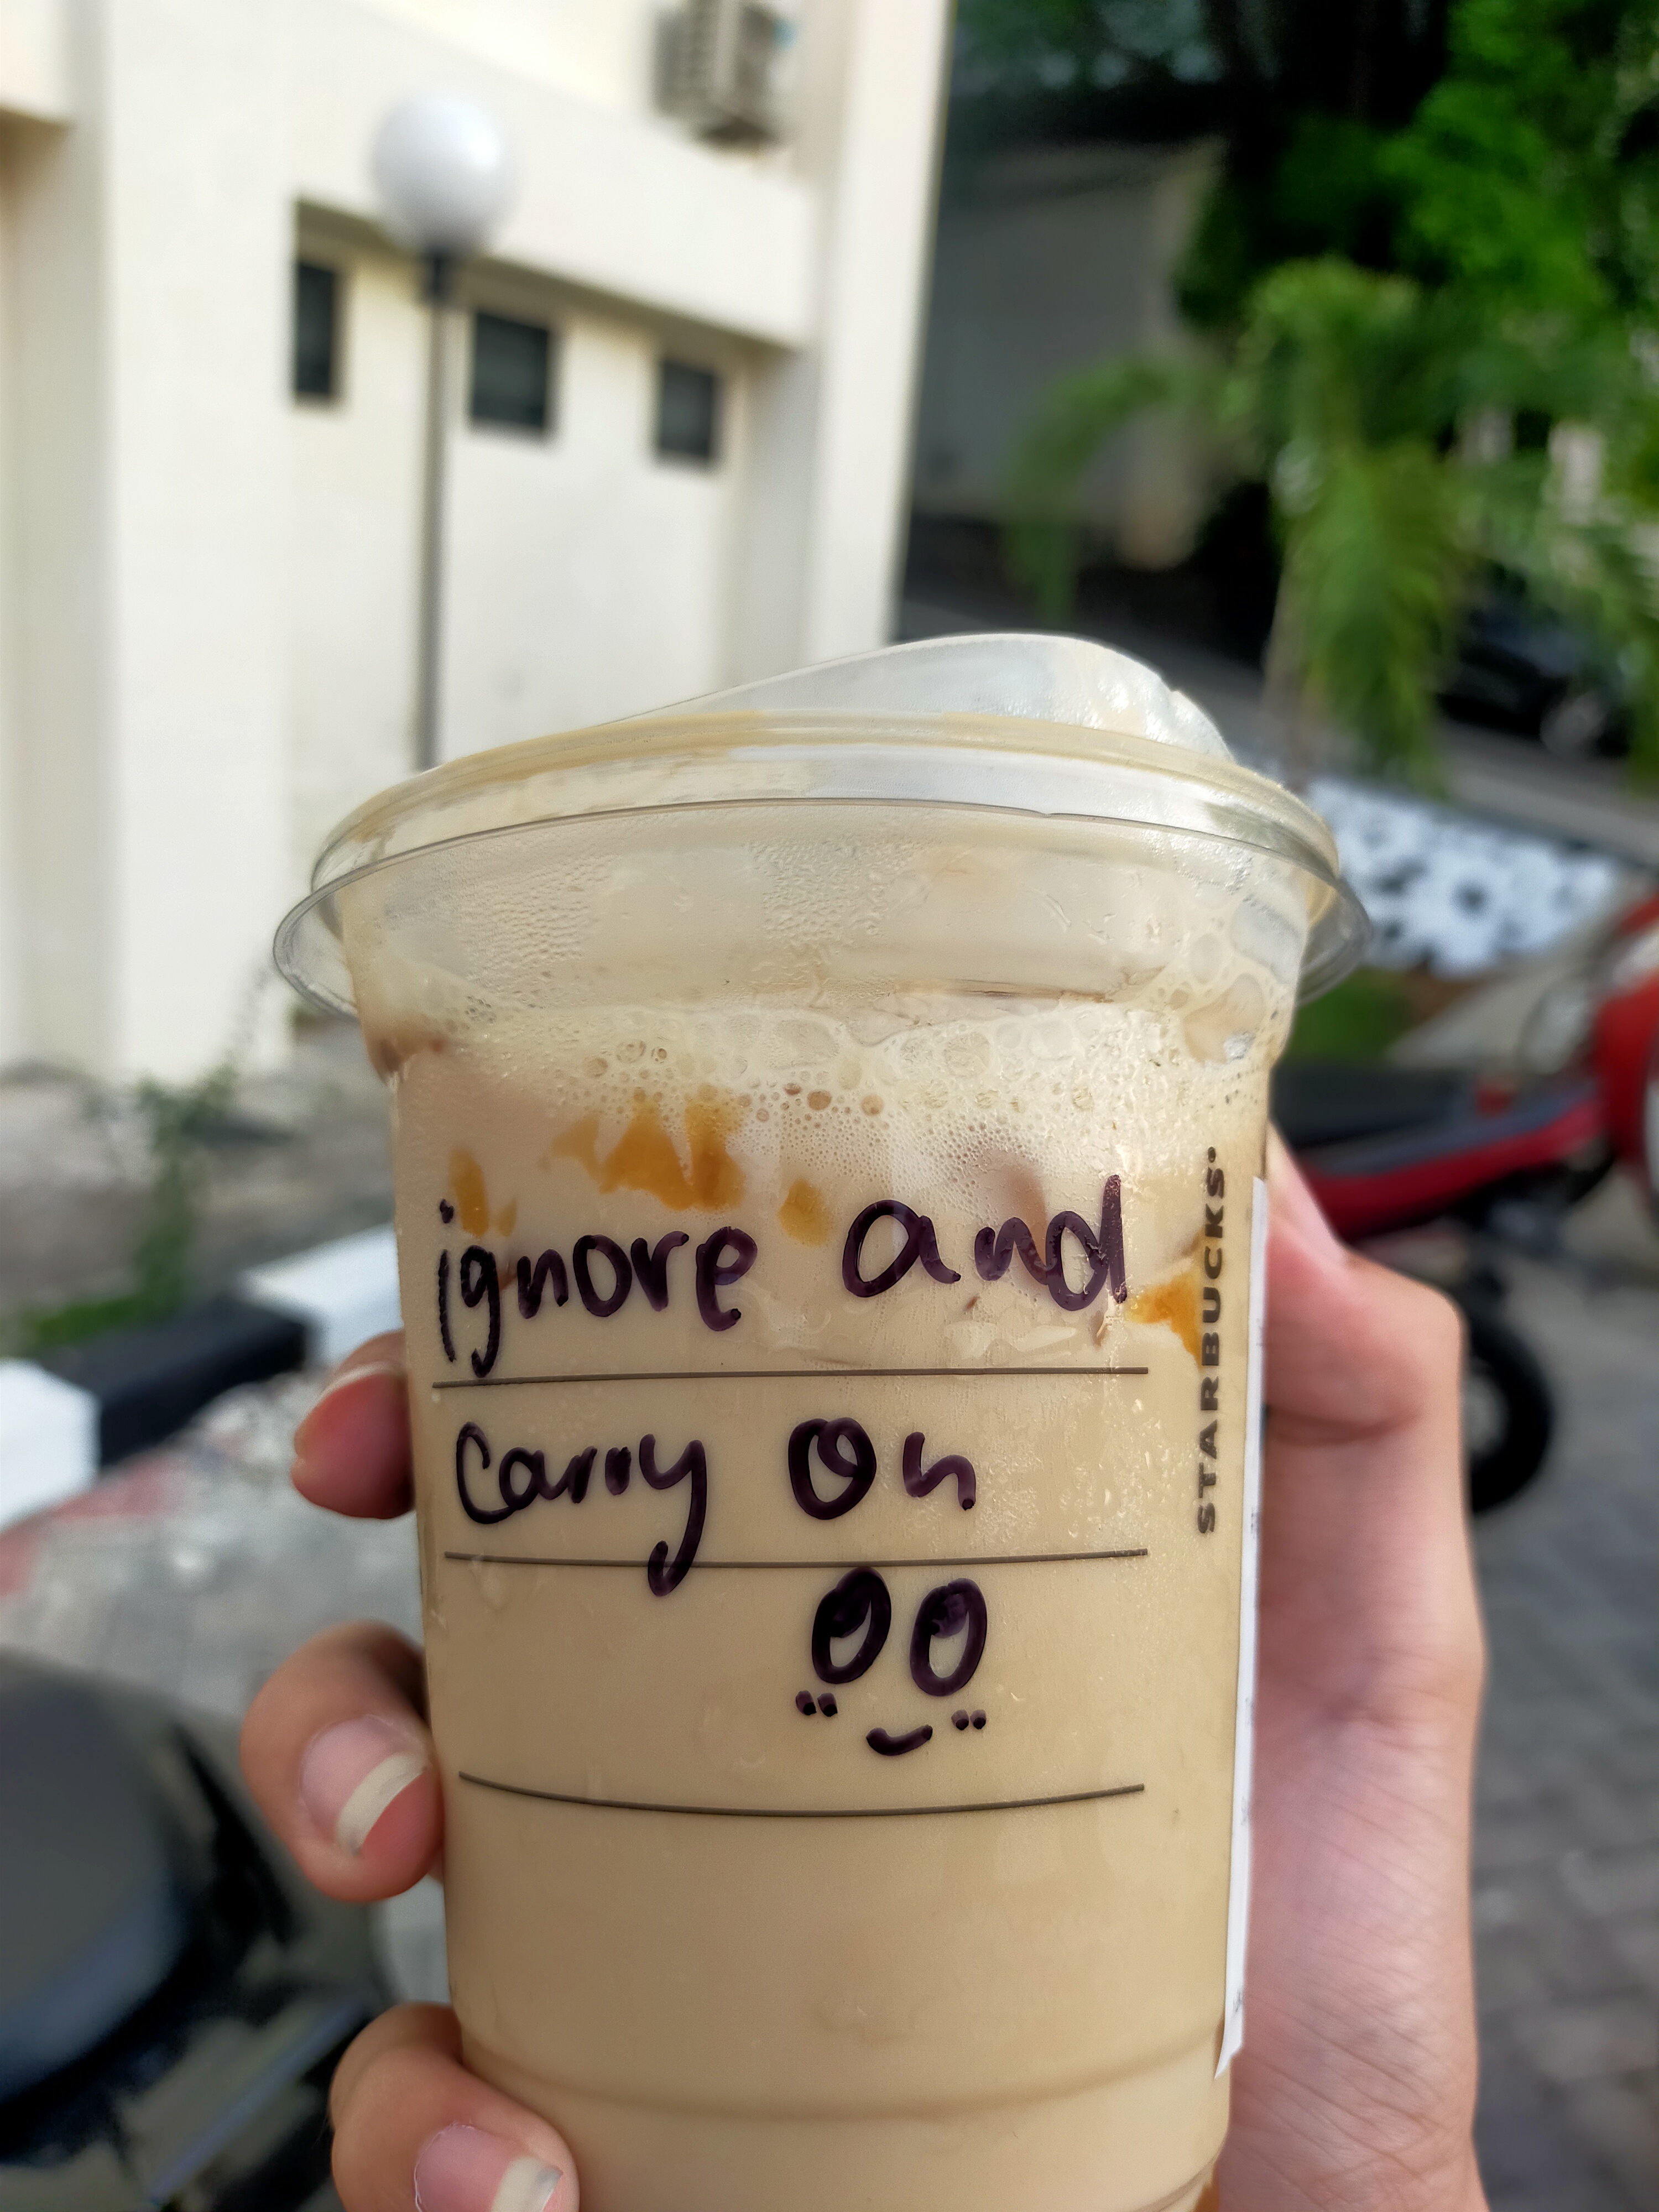 ignore and
carry on
STARBUCKS